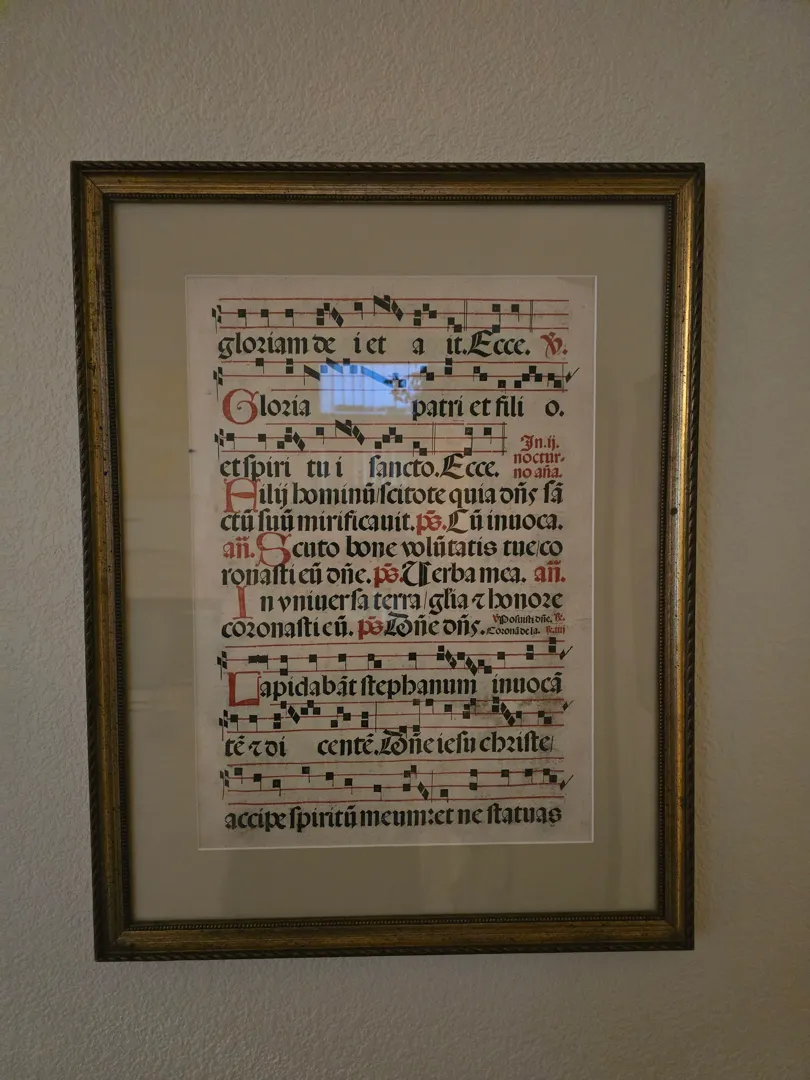 gloriam de i et a it. Ecce. V.
Gloria patri et fili o.
et spiri tu i sancto. Ecce.
In .ij.
noctur-
no aña.
Filij hominū scitote quia dñs sā
ctū suū mirificauit. ps. Cū inuoca.
añ. Scuto bone volūtatis tue co
ronasti eū dñe. ps. Uerba mea. añ.
In vniuersa terra glīa ⁊ honore
coronasti eū. ps. Dñe dñs.
V Posuisti dñe. R.
Coronā de la. R. iiij
Lapidabāt stephanum inuocā
tē ⁊ di centē. Dñe iesu christe
accipe spiritū meum: et ne statuas